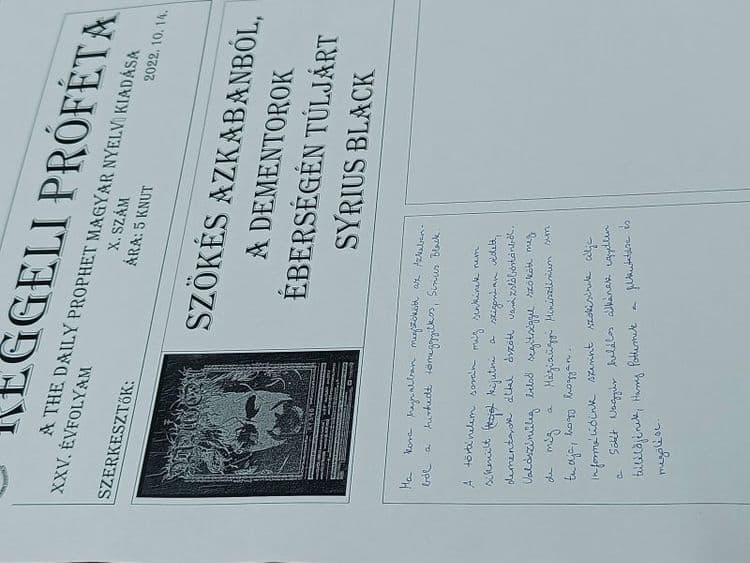 REGGELI PRÓFÉTA
A THE DAILY PROPHET MAGYAR NYELVŰ KIADÁSA
XXV. ÉVFOLYAM
X. SZÁM
2022. 10. 14.
ÁRA: 5 KNUT
SZERKESZTŐK:
SZÖKÉS AZKABANBÓL,
A DEMENTOROK
ÉBERSÉGÉN TÚLJÁRT
SYRIUS BLACK
Ma kora hajnalban megszökött az Azkaban-
ból a hírhedt tömeggyilkos, Sirius Black
A történelem során még senkinek nem
sikerült kijutni a szigorúan védett,
dementorok által őrzött varázslóbörtönből.
Valószínűleg belső segítséggel szökött meg
de még a Mágiaügyi Minisztérium sem
tudja, hogy hogyan.
Információink szerint szökésének célja
a Sötét Nagyúr halálos átkának egyetlen
túlélőjének, Harry Potternek a felkutatása és
megölése.